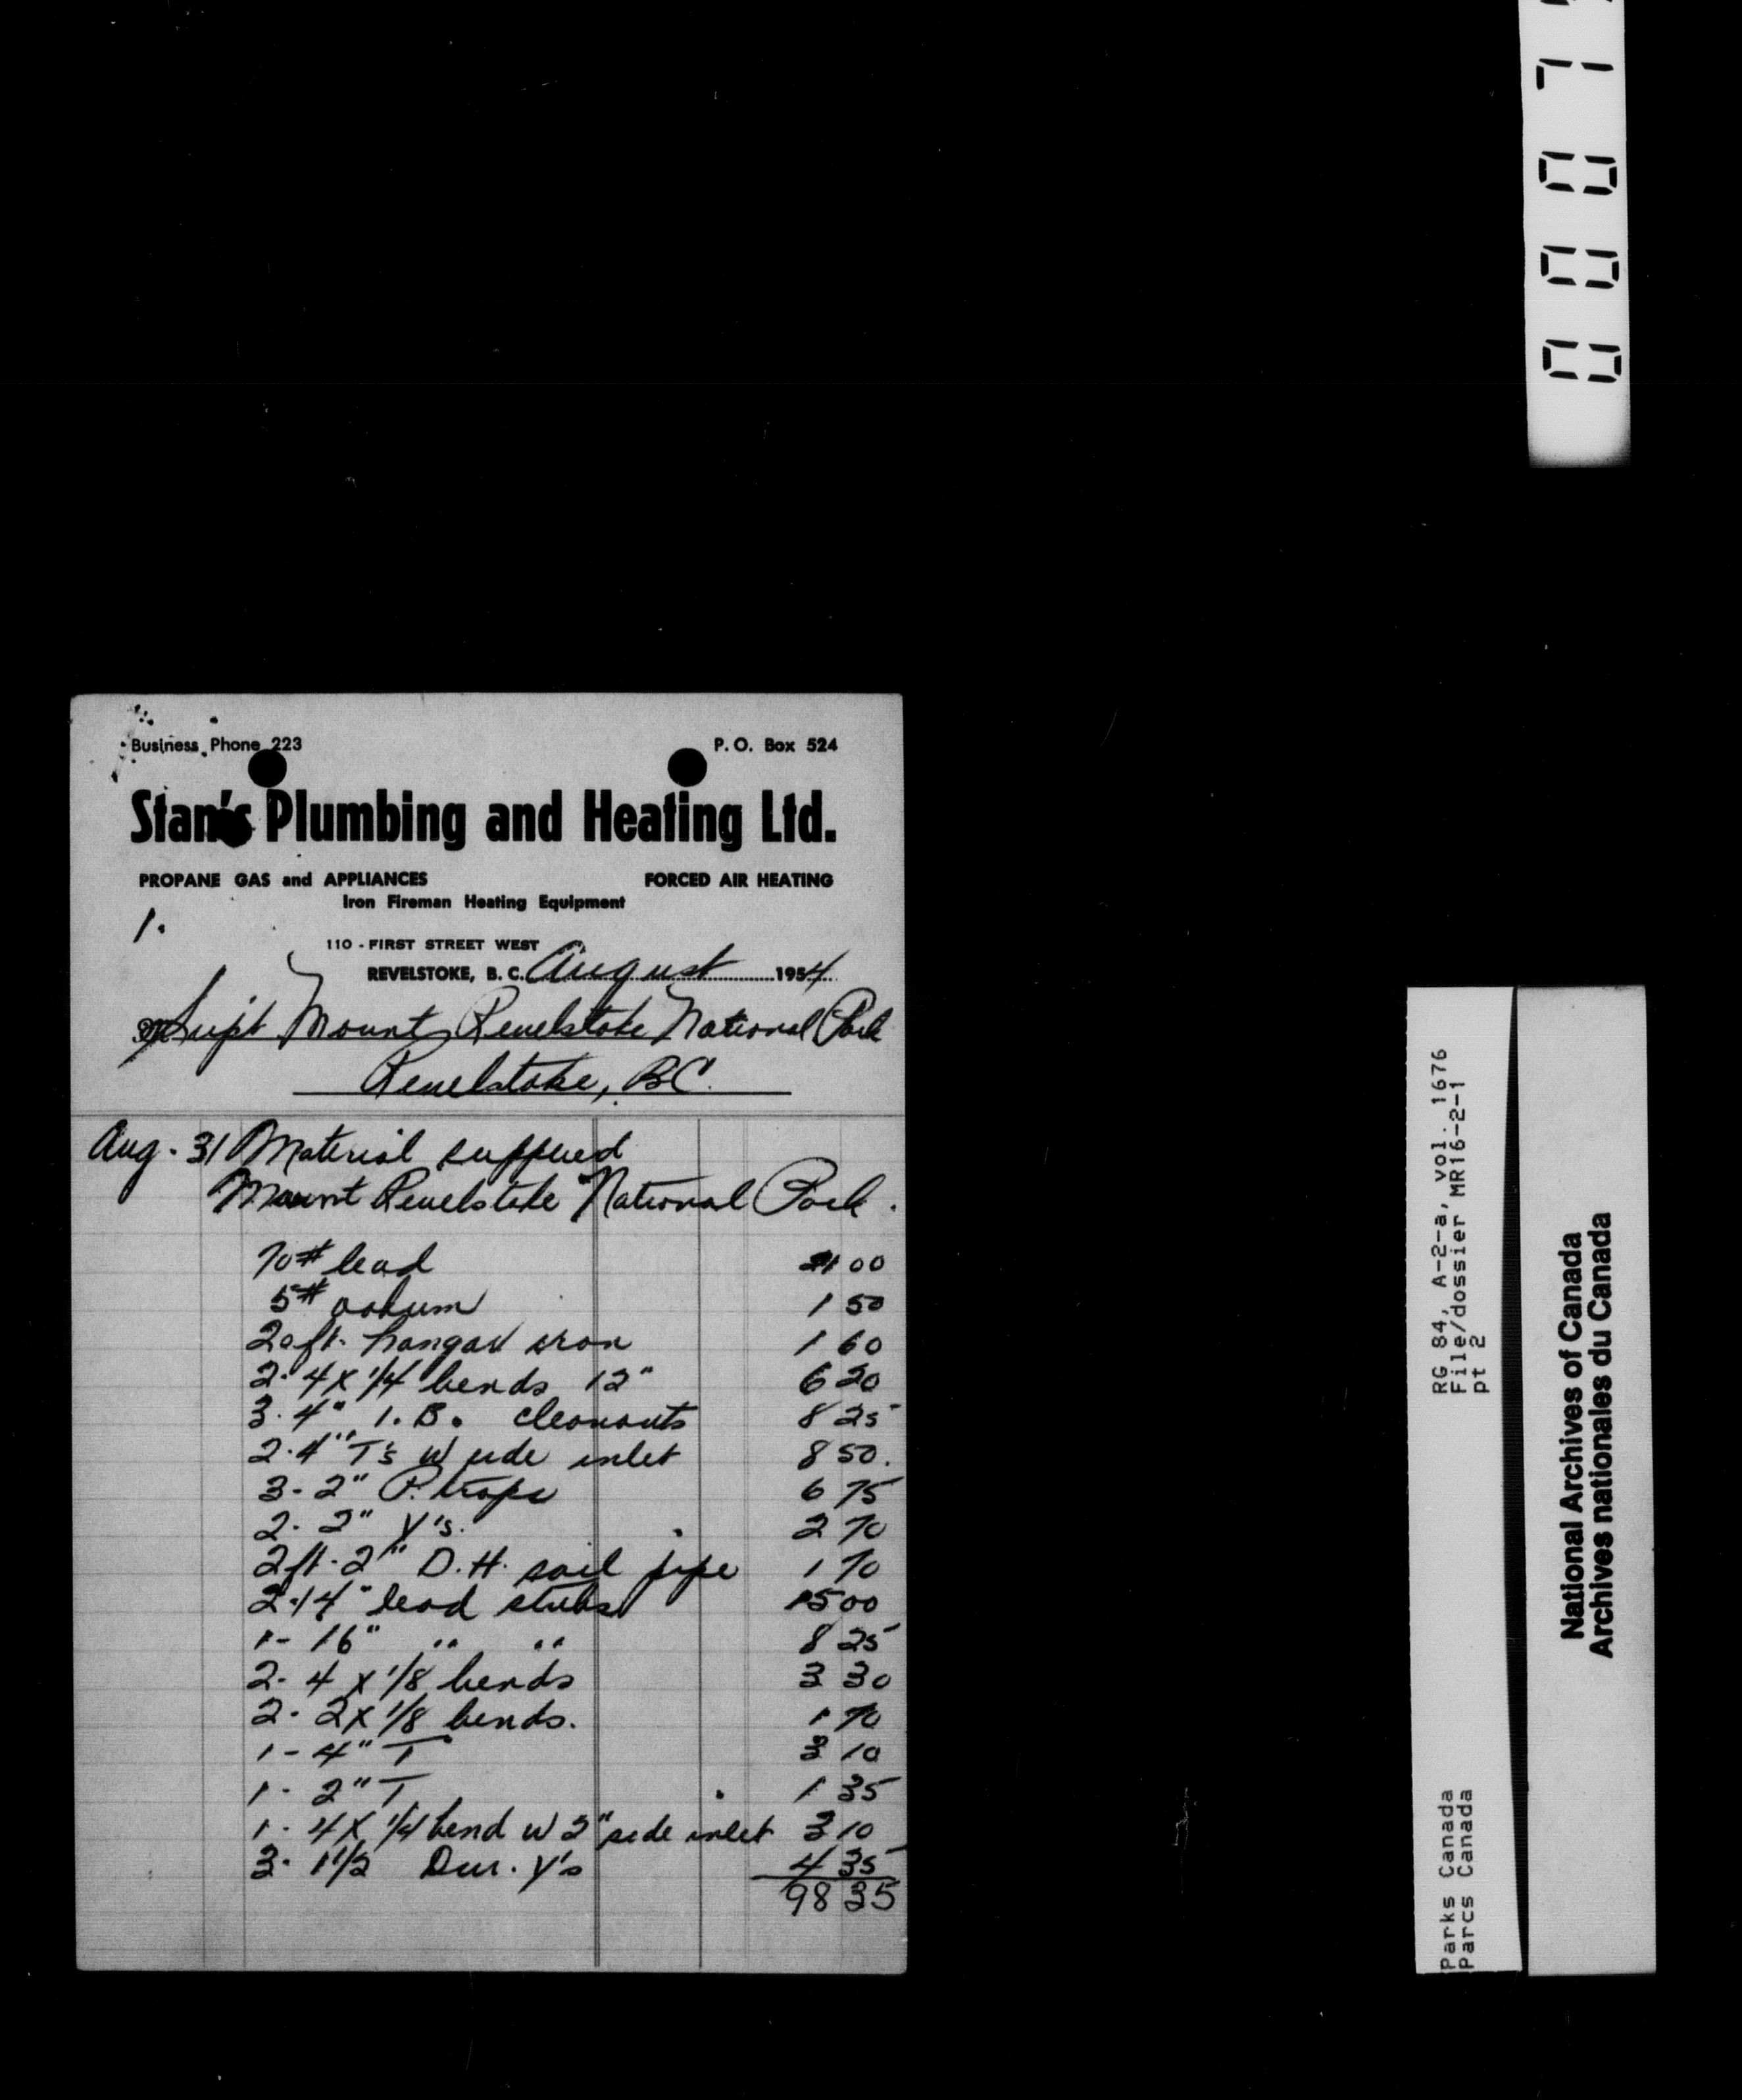 Business Phone 223 P. O. Box 524
Stan's Plumbing and Heating Ltd.
PROPANE GAS and APPLIANCES FORCED AIR HEATING
Iron Fireman Heating Equipment
1.
110 - FIRST STREET WEST
REVELSTOKE, B. C. August 1954
Supt Mount Revelstoke National Park
Revelstoke, BC.
Aug. 31 Material supplied
Mount Revelstoke National Park.
70# lead 21 00
5# oakum 1 50
20 ft. hangar iron 1 60
2. 4 x 1/4 bends 12" 6 20
3. 4" I. B. cleanouts 8 25
2. 4" T's w side inlet 8 50.
3 - 2" P. traps 6 75
2 - 2" Y's. 2 70
2 ft - 2" D.H. soil pipe 1 70
2 - 14" lead stubs 15 00
1 - 16" " " 8 25
2 - 4 x 1/8 bends 3 30
2 - 2 x 1/8 bends. 1 70
1 - 4" T 3 10
1 - 2" T 1 35
1 - 4 x 1/4 bend w 2" side inlet 3 10
3 - 1 1/2 Dur. Y's 4 35
98 35
0007
RG 84, A-2-a, vol. 1676
File/dossier MR16-2-11
pt 2
Parks Canada
Parcs Canada
National Archives of Canada
Archives nationales du Canada